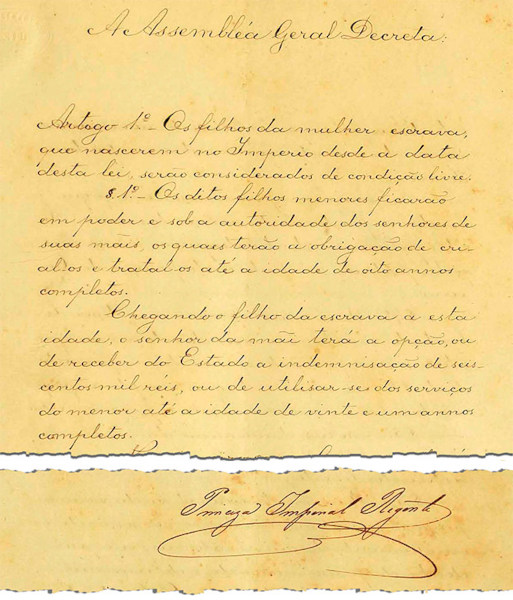 A Assembléa Geral Decreta:
Artogo 1º_ Os filhos da mulher escrava,
que nascerem no Imperio desde a data
desta lei, serão considerados de condição livre.
§.1º_ Os ditos filhos menores ficarão
em poder e sob a autoridade dos senhores de
suas mãis, os quaes terão a obrigação de cri-
al-os e tratal-os até a idade de oito annos
completos.
Chegando o filho da escrava a esta
idade, o senhor da mãi terá a opção, ou
de receber do Estado a indemnisação de seis-
centos mil réis, ou de utilisar-se dos serviços
do menor até a idade de vinte e um annos
completos.
Princeza Imperial Regente